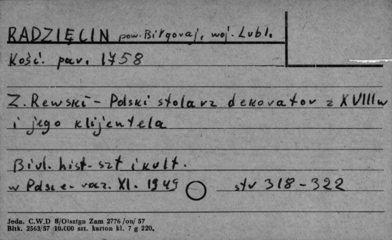 RADZIĘCIN pow. Biłgoraj, woj. Lubl.
Kość. par. 1758
Z. Rewski - Polski stolarz dekorator z XVIII w
i jego klijentela
Biul. hist. szt i kult.
w Polsce - rocz. XI. 1949 str 318-322
Jedn. C.W.D B/Olsztyn Zam 2776/on/57
Bltk. 2563/57 10.000 szt. karton kl. 7 g 220.